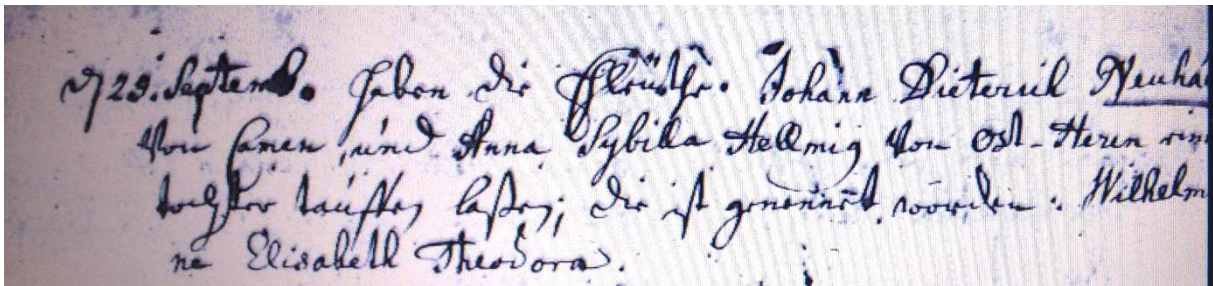 d 29. Septemb. haben die Eheleüthe. Johann Dieterich Neuha
Von Camen, und Anna Sybilla Hellmig Von Ost-Heren eine
tochter täuffen laßen; die ist genennet worden: Wilhelm
ne Elisabeth Theodora.